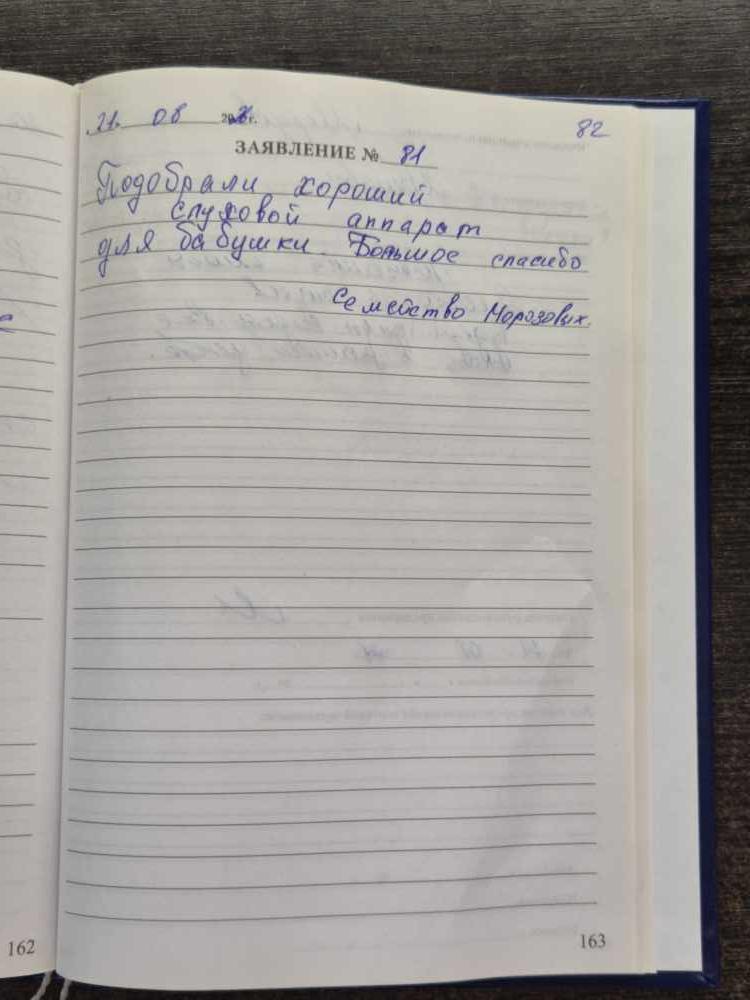 21. 08 20 г.
82
ЗАЯВЛЕНИЕ № 81
Подобрали хороший
слуховой аппарат
для бабушки. Большое спасибо
Семейство Морозовых.
162
163